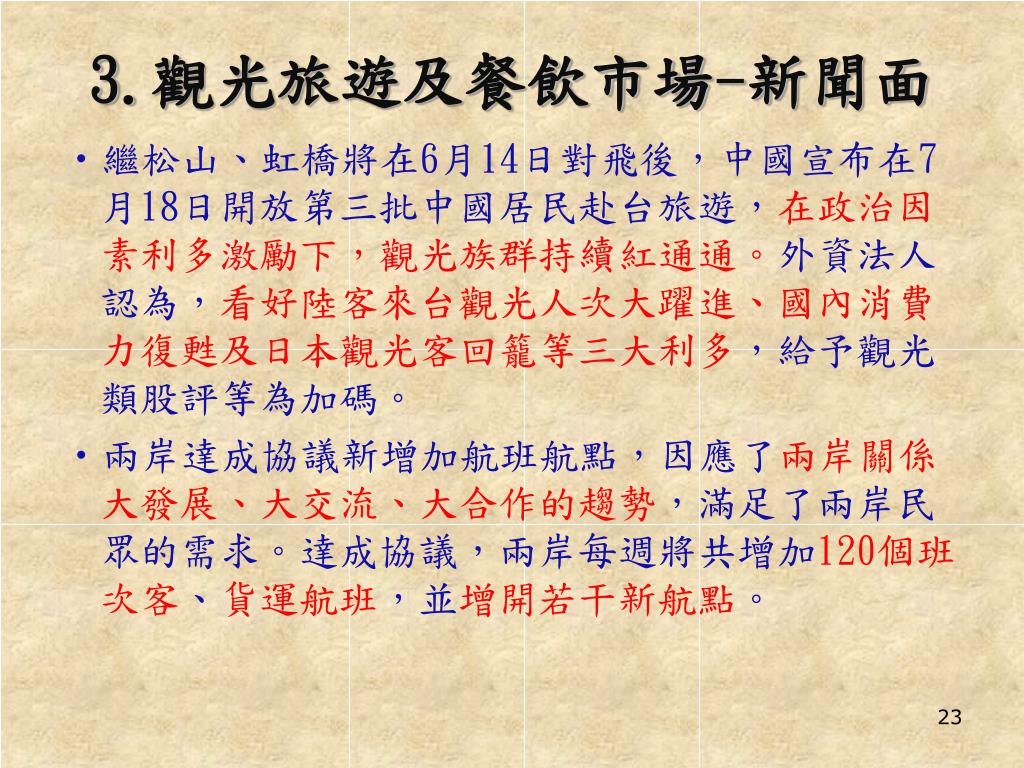 3.觀光旅遊及餐飲市場-新聞面
•繼松山、虹橋將在6月14日對飛後，中國宣布在7
月18日開放第三批中國居民赴台旅遊，在政治因
素利多激勵下，觀光族群持續紅通通。外資法人
認為，看好陸客來台觀光人次大躍進、國內消費
力復甦及日本觀光客回籠等三大利多，給予觀光
類股評等為加碼。
•兩岸達成協議新增加航班航點，因應了兩岸關係
大發展、大交流、大合作的趨勢，滿足了兩岸民
眾的需求。達成協議，兩岸每週將共增加120個班
次客、貨運航班，並增開若干新航點。
23